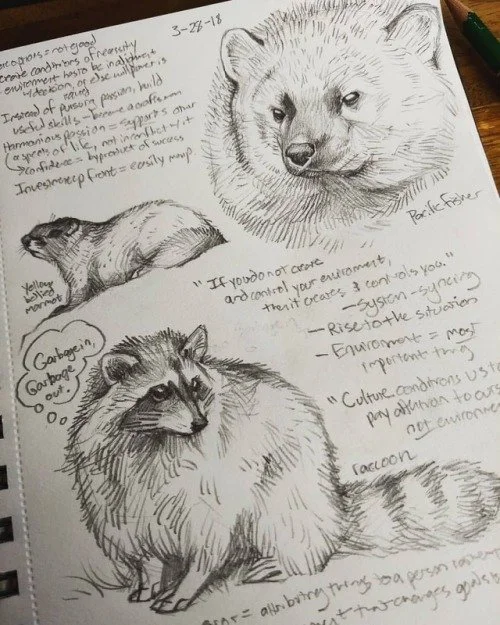 3-28-18
= not good
create conditions of necessity
environment has to be in alignment
w/ decision, or else willpower is
Instead of pursuing passion, build
useful skills - become a craftsman
Harmonious passion = supports other
aspects of life, not in conflict w/ it
confidence = byproduct of success
Invest up front = easily
Pacific Fisher
Yellow
bellied
marmot
"If you do not create
and control your environment,
then it creates & controls you."
- System - syncing
- Rise to the situation
- Environment = most
important thing
Garbage in,
Garbage
out.
"Culture conditions us to
pay attention to
not environment
raccoon
= attributing things to a person
that changes goals